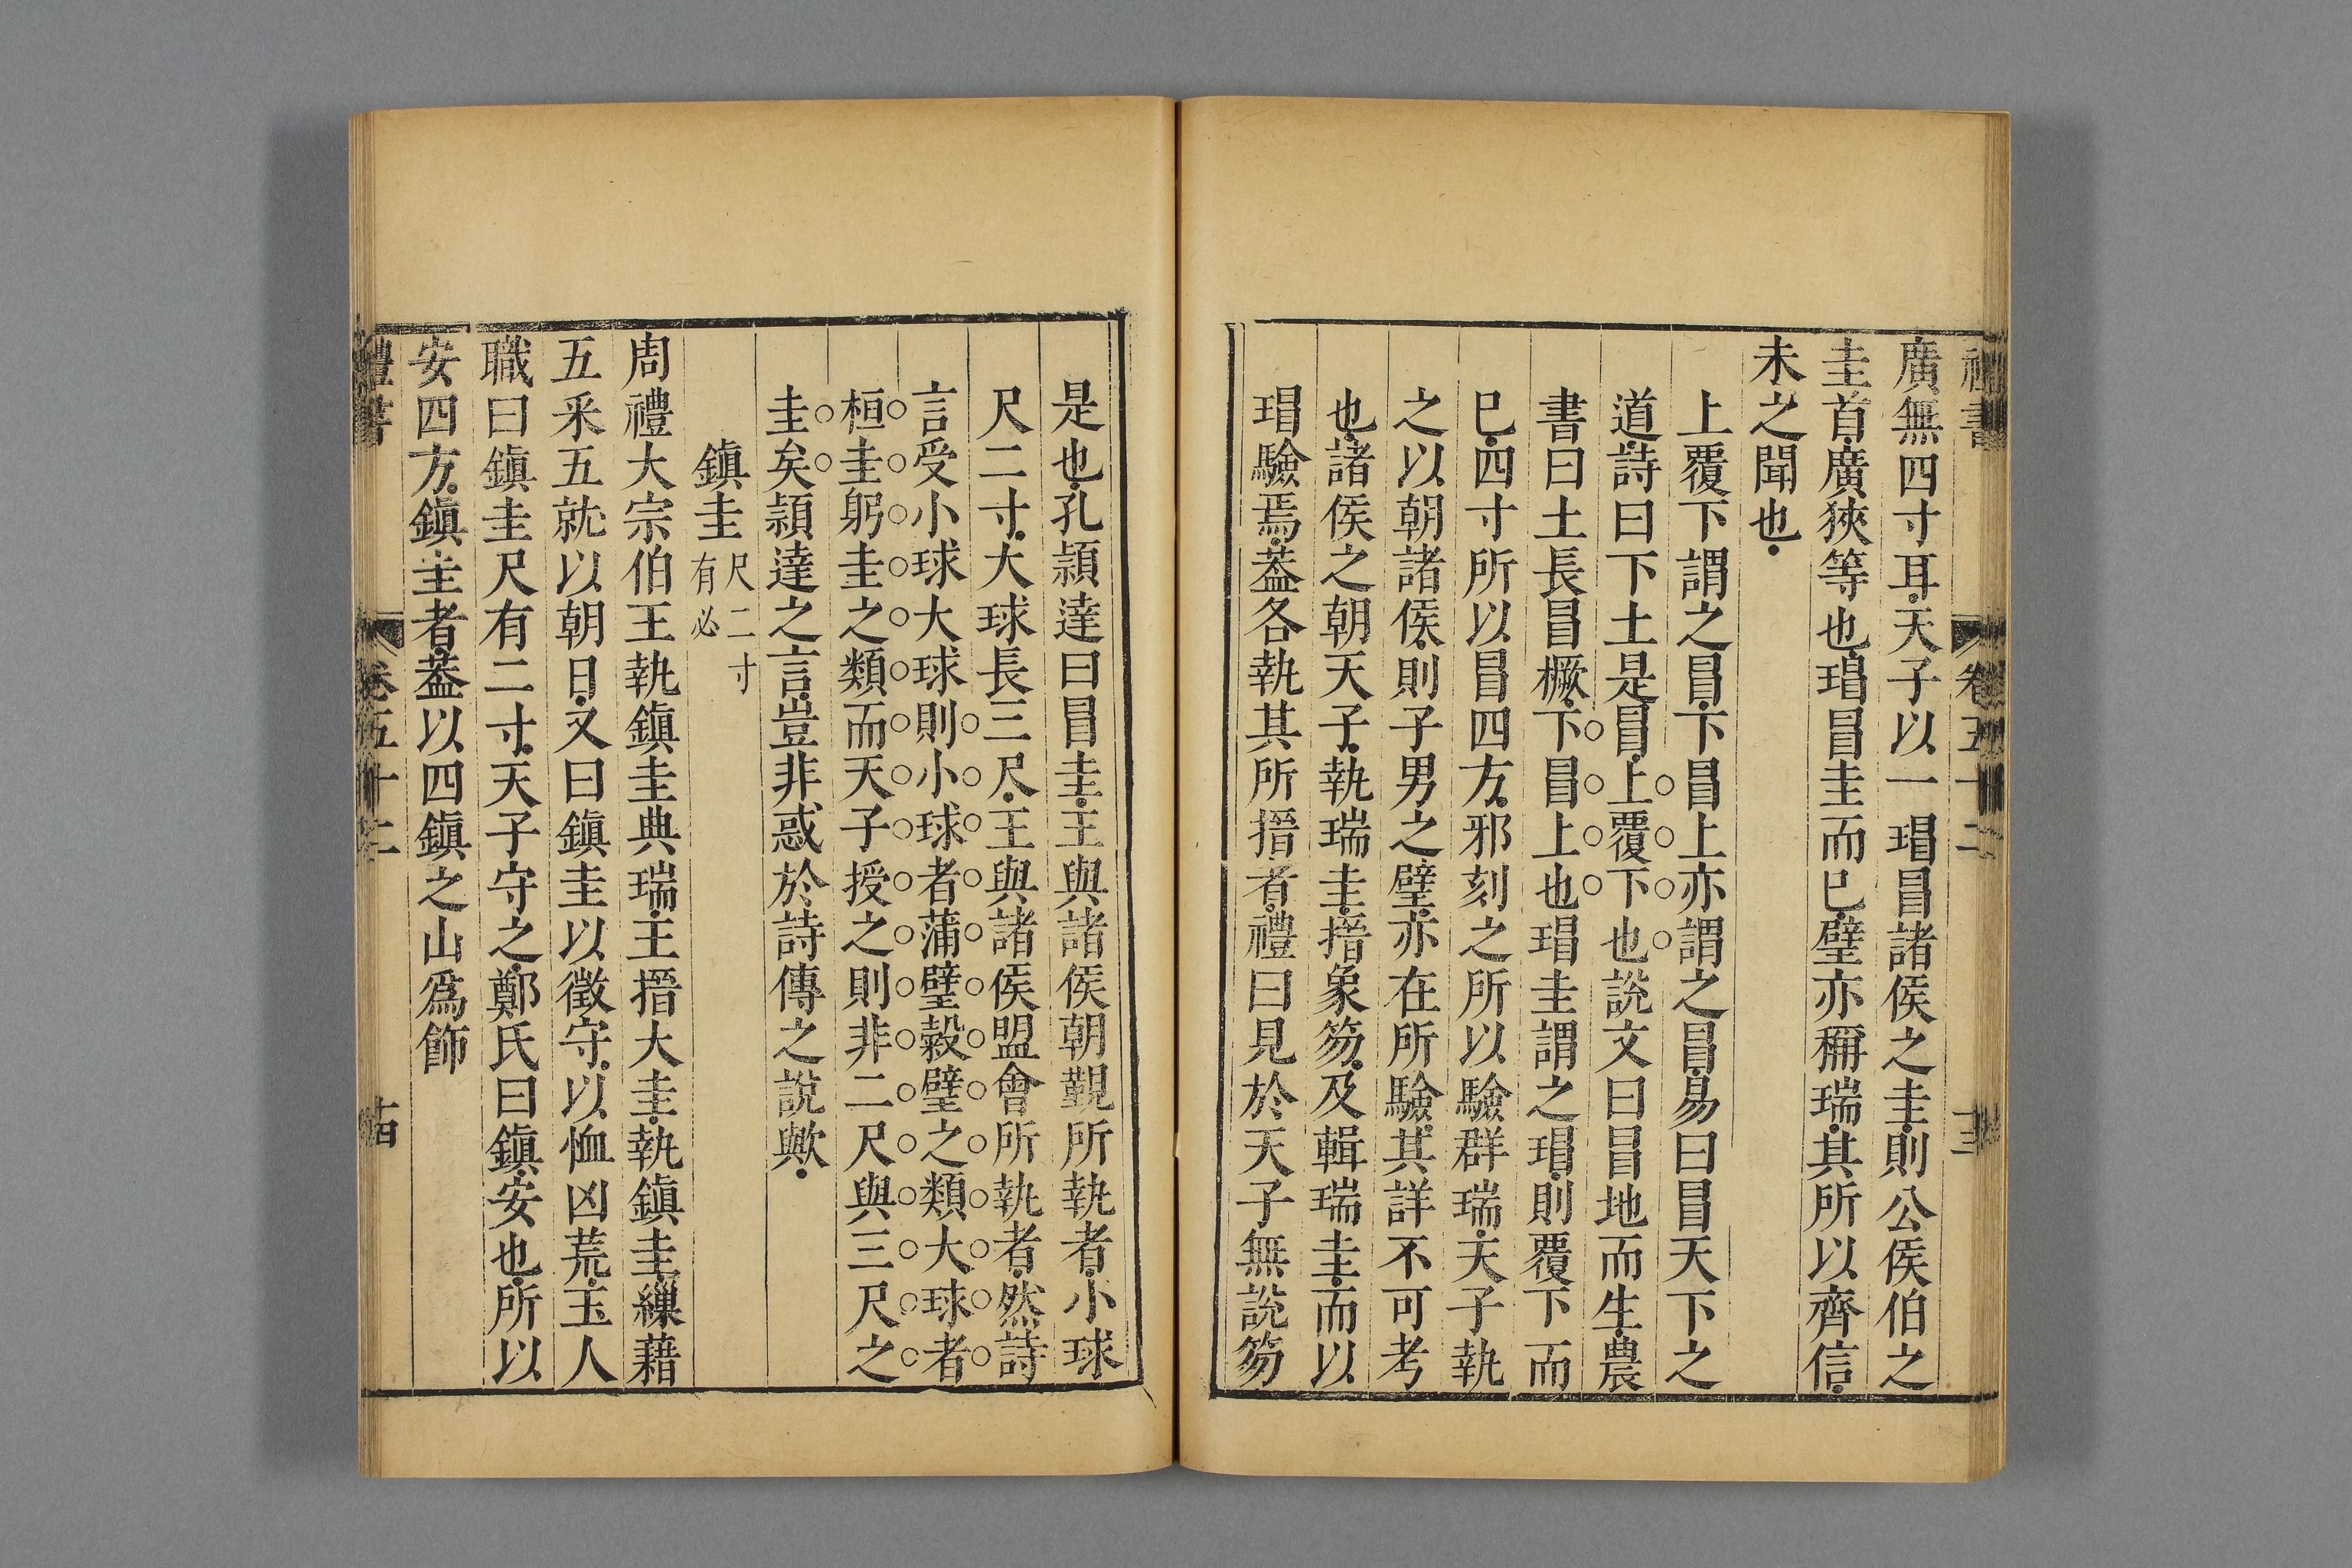 廣無四寸耳天子以一瑁冒諸侯之圭則公侯伯之
圭首廣狹等也瑁冒圭而已璧亦稱瑞其所以齊信
未之聞也
上覆下謂之冒下冒上亦謂之冒易曰冒天下之
道詩曰下土是冒上覆下也說文曰冒地而生農
書曰土長冒橛下冒上也瑁圭謂之瑁則覆下而
已四寸所以冒四方邪刻之所以驗群瑞天子執
之以朝諸侯則子男之璧亦在所驗其詳不可考
也諸侯之朝天子執瑞圭搢象笏及輯瑞圭而以
瑁驗焉葢各執其所搢者禮曰見於天子無說笏
是也孔頴達曰冒圭王與諸侯朝覲所執者小球
尺二寸大球長三尺王與諸侯盟會所執者然詩
言受小球大球則小球者蒲璧穀璧之類大球者
桓圭躬圭之類而天子授之則非二尺與三尺之
圭矣頴達之言豈非惑於詩傳之說歟
鎮圭 尺二寸 有必
周禮大宗伯王執鎮圭典瑞王搢大圭執鎮圭繅藉
五采五就以朝日又曰鎮圭以徵守以恤凶荒玉人
職曰鎮圭尺有二寸天子守之鄭氏曰鎮安也所以
安四方鎮圭者葢以四鎮之山爲飾
禮書 卷五十二 十四